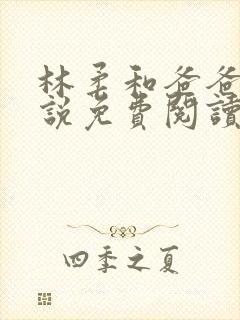 林柔和爸爸
說免費閱讀
四季之夏